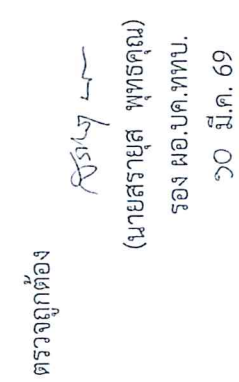 ตรวจถูกต้อง
(นายสรายุส พุทธคุณ)
รอง ผอ.บค.ททบ.
๑๐ มี.ค. 69